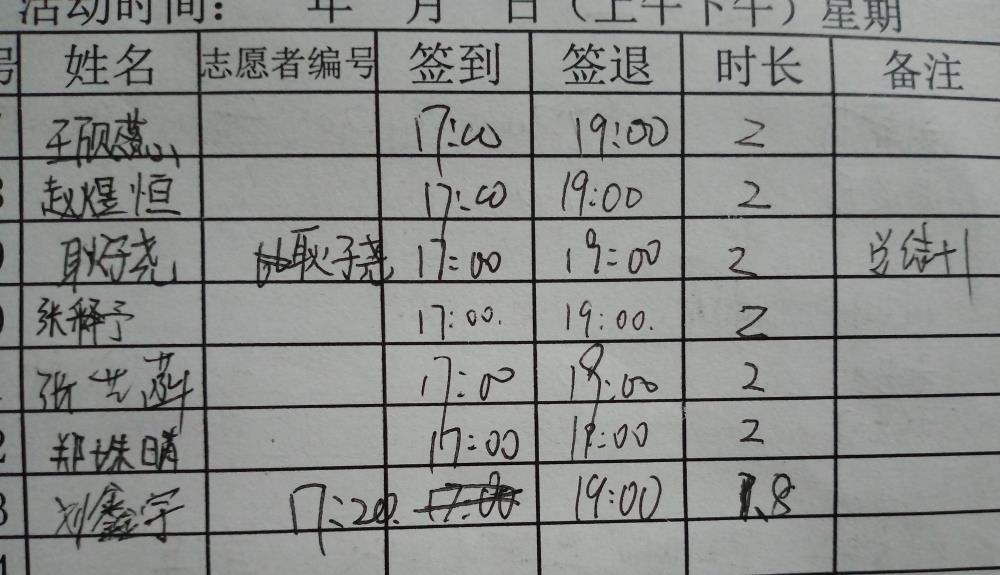 活动时间: 年 月 日（上午下午）星期
号 姓名 志愿者编号 签到 签退 时长 备注
王硕慧 17:00 19:00 2
赵煜恒 17:00 19:00 2
耿子尧 耿子尧 17:00 19:00 2 总结+1
张释予 17:00. 19:00. 2
张艺涵 17:00 19:00 2
郑姝晴 17:00 19:00 2
刘鑫宇 17:20. 17:00 19:00 1.8